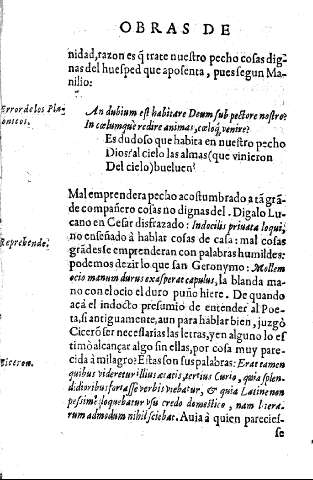 OBRAS DE
nidad, razon es q̃ trate nuestro pecho cosas dig-
nas del huesped que aposenta, pues segun Ma-
nilio:
Error de los Pla-
tonicos.
An dubium est habitare Deum sub pectore nostro?
In cœlumque redire animas, cœloq́; venire?
Es dudoso que habita en nuestro pecho
Dios? al cielo las almas (que vinieron
Del cielo) bueluen?
Mal emprendera pecho acostumbrado a tã grã-
de compañero cosas no dignas del. Digalo Lu-
cano en Cesar disfrazado: Indocilis priuata loqui,
no enseñado à hablar cosas de casa: mal cosas
Reprehende.
grãdes se emprenderan con palabras humildes:
podemos dezir lo que san Geronymo: Mollem
ocio manum durus exasperat capulus, la blanda ma-
no con el ocio el duro puño hiere. De quando
acà el indocto presumio de entender al Poe-
ta, si antiguamente, aun para hablar bien, juzgò
Ciceron.
Cicerõ ser necessarias las letras, y en alguno lo es
timò alcançar algo sin ellas, por cosa muy pare-
cida à milagro? Estas son sus palabras: Erat tamen
quibus videretur illius ætatis, tertius Curio, quia splen-
didioribus fortasse verbis vtebatur, & quia Latine non
pessimè loquebatur vsu credo domestico, nam litera-
rum admodum nihil sciebat. Auia à quien pareciesse-
se